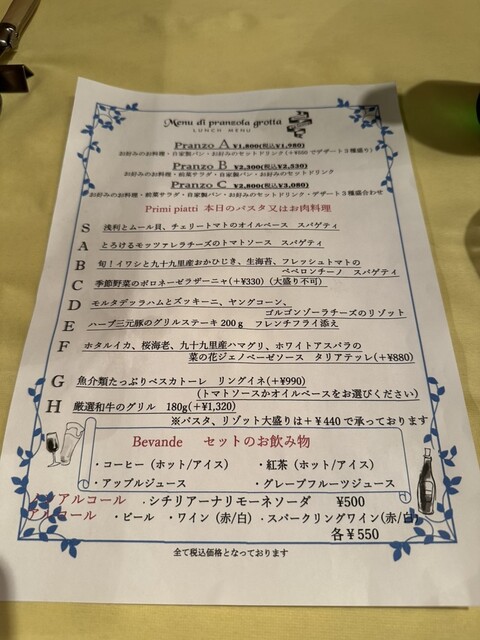 Menu di pranzo la grotta
LUNCH MENU
Pranzo A ¥1,800(税込¥1,980)
お好みのお料理・自家製パン・お好みのセットドリンク(+¥600でデザート3種盛り)
Pranzo B ¥2,300(税込¥2,530)
お好みのお料理・前菜サラダ・自家製パン・お好みのセットドリンク
Pranzo C ¥2,800(税込¥3,080)
お好みのお料理・前菜サラダ・自家製パン・お好みのセットドリンク・デザート3種盛合わせ
Primi piatti 本日のパスタ又はお肉料理
S 浅利とムール貝、チェリートマトのオイルベース スパゲティ
A とろけるモッツァレラチーズのトマトソース スパゲティ
B 旬!イワシと九十九里産おかひじき、生海苔、フレッシュトマトの
ペペロンチーノ スパゲティ
C 季節野菜のボロネーゼラザーニャ(+¥330)(大盛り不可)
D モルタデッラハムとズッキーニ、ヤングコーン、
ゴルゴンゾーラチーズのリゾット
E ハーブ三元豚のグリルステーキ200g フレンチフライ添え
F ホタルイカ、桜海老、九十九里産ハマグリ、ホワイトアスパラの
菜の花ジェノベーゼソース タリアテッレ(+¥880)
G 魚介類たっぷりペスカトーレ リングイネ(+¥990)
(トマトソースかオイルベースをお選びください)
H 厳選和牛のグリル 180g(+¥1,320)
※パスタ、リゾット大盛りは+¥440で承っております
Bevande セットのお飲み物
・コーヒー(ホット/アイス) ・紅茶(ホット/アイス)
・アップルジュース ・グレープフルーツジュース
ノンアルコール ・シチリアーナリモーネソーダ ¥500
アルコール ・ビール ・ワイン(赤/白) ・スパークリングワイン(赤/白)
各¥550
全て税込価格となっております